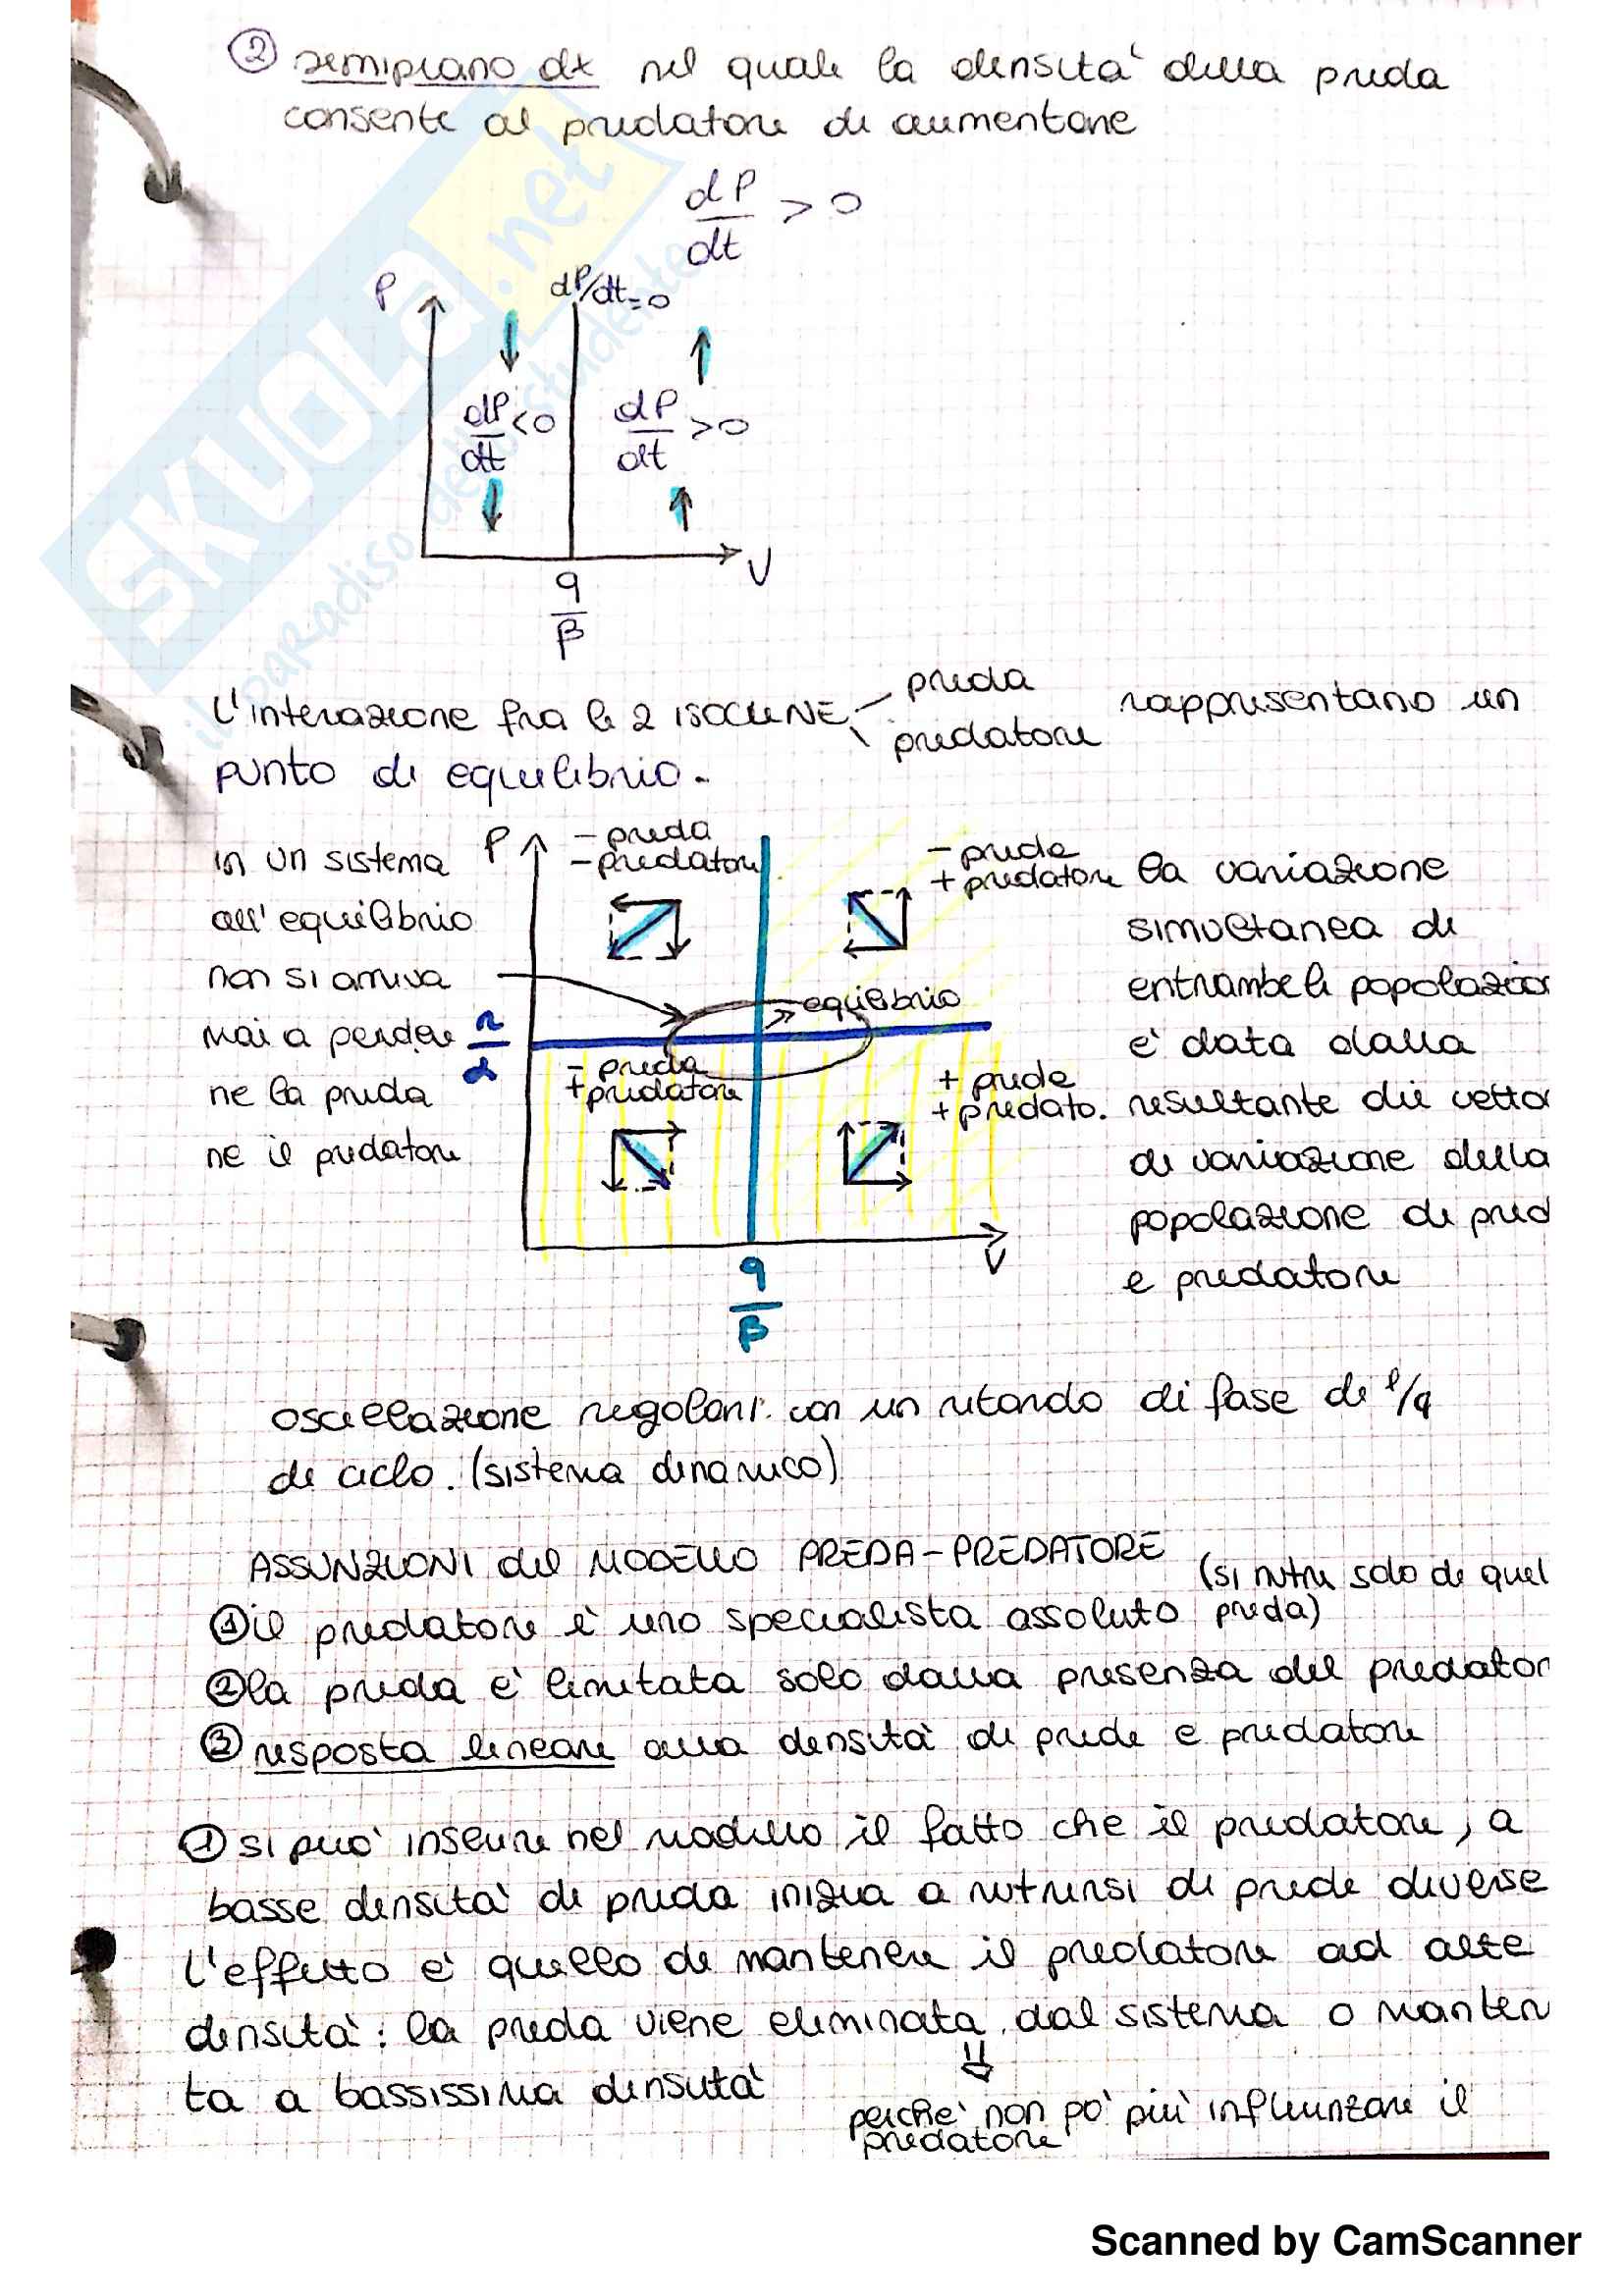 ② semipiano dx nel quale la densità della preda
consente al predatore di aumentare
dP/dt > 0
P
dP/dt=0
dP/dt <0
dP/dt >0
V
q/β
L'interazione fra le 2 ISOCLINE preda
predatore
rappresentano un
punto di equilibrio.
in un sistema
all'equilibrio
non si arriva
mai a perdere
ne la preda
ne il predatore
P
- preda
- predatore
- prede
+ predatore
equilibrio
r/α
- preda
+ predatore
+ prede
+ predato.
V
q/β
la variazione
simultanea di
entrambe le popolazion
e' data dalla
resultante die vetto
di variazione della
popolazione di pred
e predatore
oscillazione regolari con un ritardo di fase di 1/4
di ciclo. (sistema dinamico)
ASSUNZIONI del MODELLO PREDA-PREDATORE
(si nutre solo di quel
preda)
① il predatore è uno specialista assoluto
② la preda e' limitata solo dalla presenza del predator
③ risposta lineare alla densità di prede e predatore
① si puo' inserire nel modello il fatto che il predatore, a
basse densità di preda inizia a nutrirsi di prede diverse
L'effetto e' quello di mantenere il predatore ad alte
densità: la preda viene eliminata dal sistema o manten
ta a bassissima densità
perche' non po' più influenzare il
predatore
SKUOLA.net
il paradiso dello studente
Scanned by CamScanner